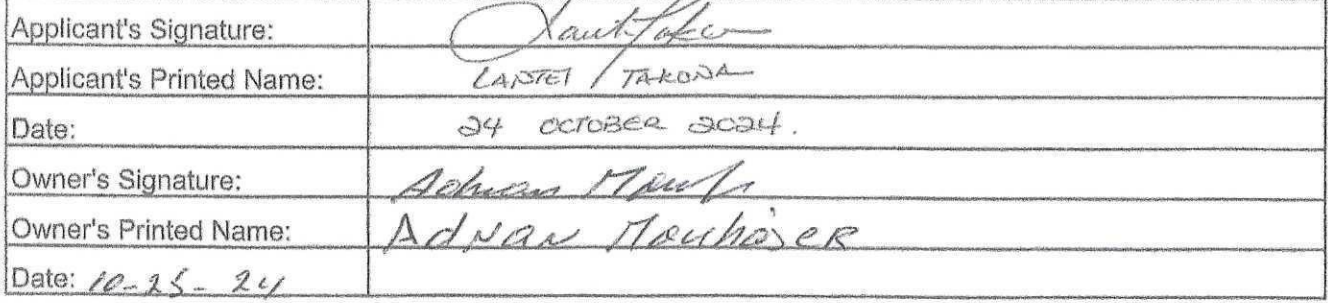 Applicant's Signature:
Applicant's Printed Name: TAKONA
Date: 24 OCTOBER 2024.
Owner's Signature: Adnan
Owner's Printed Name: AdNaN
Date: 10-25-24